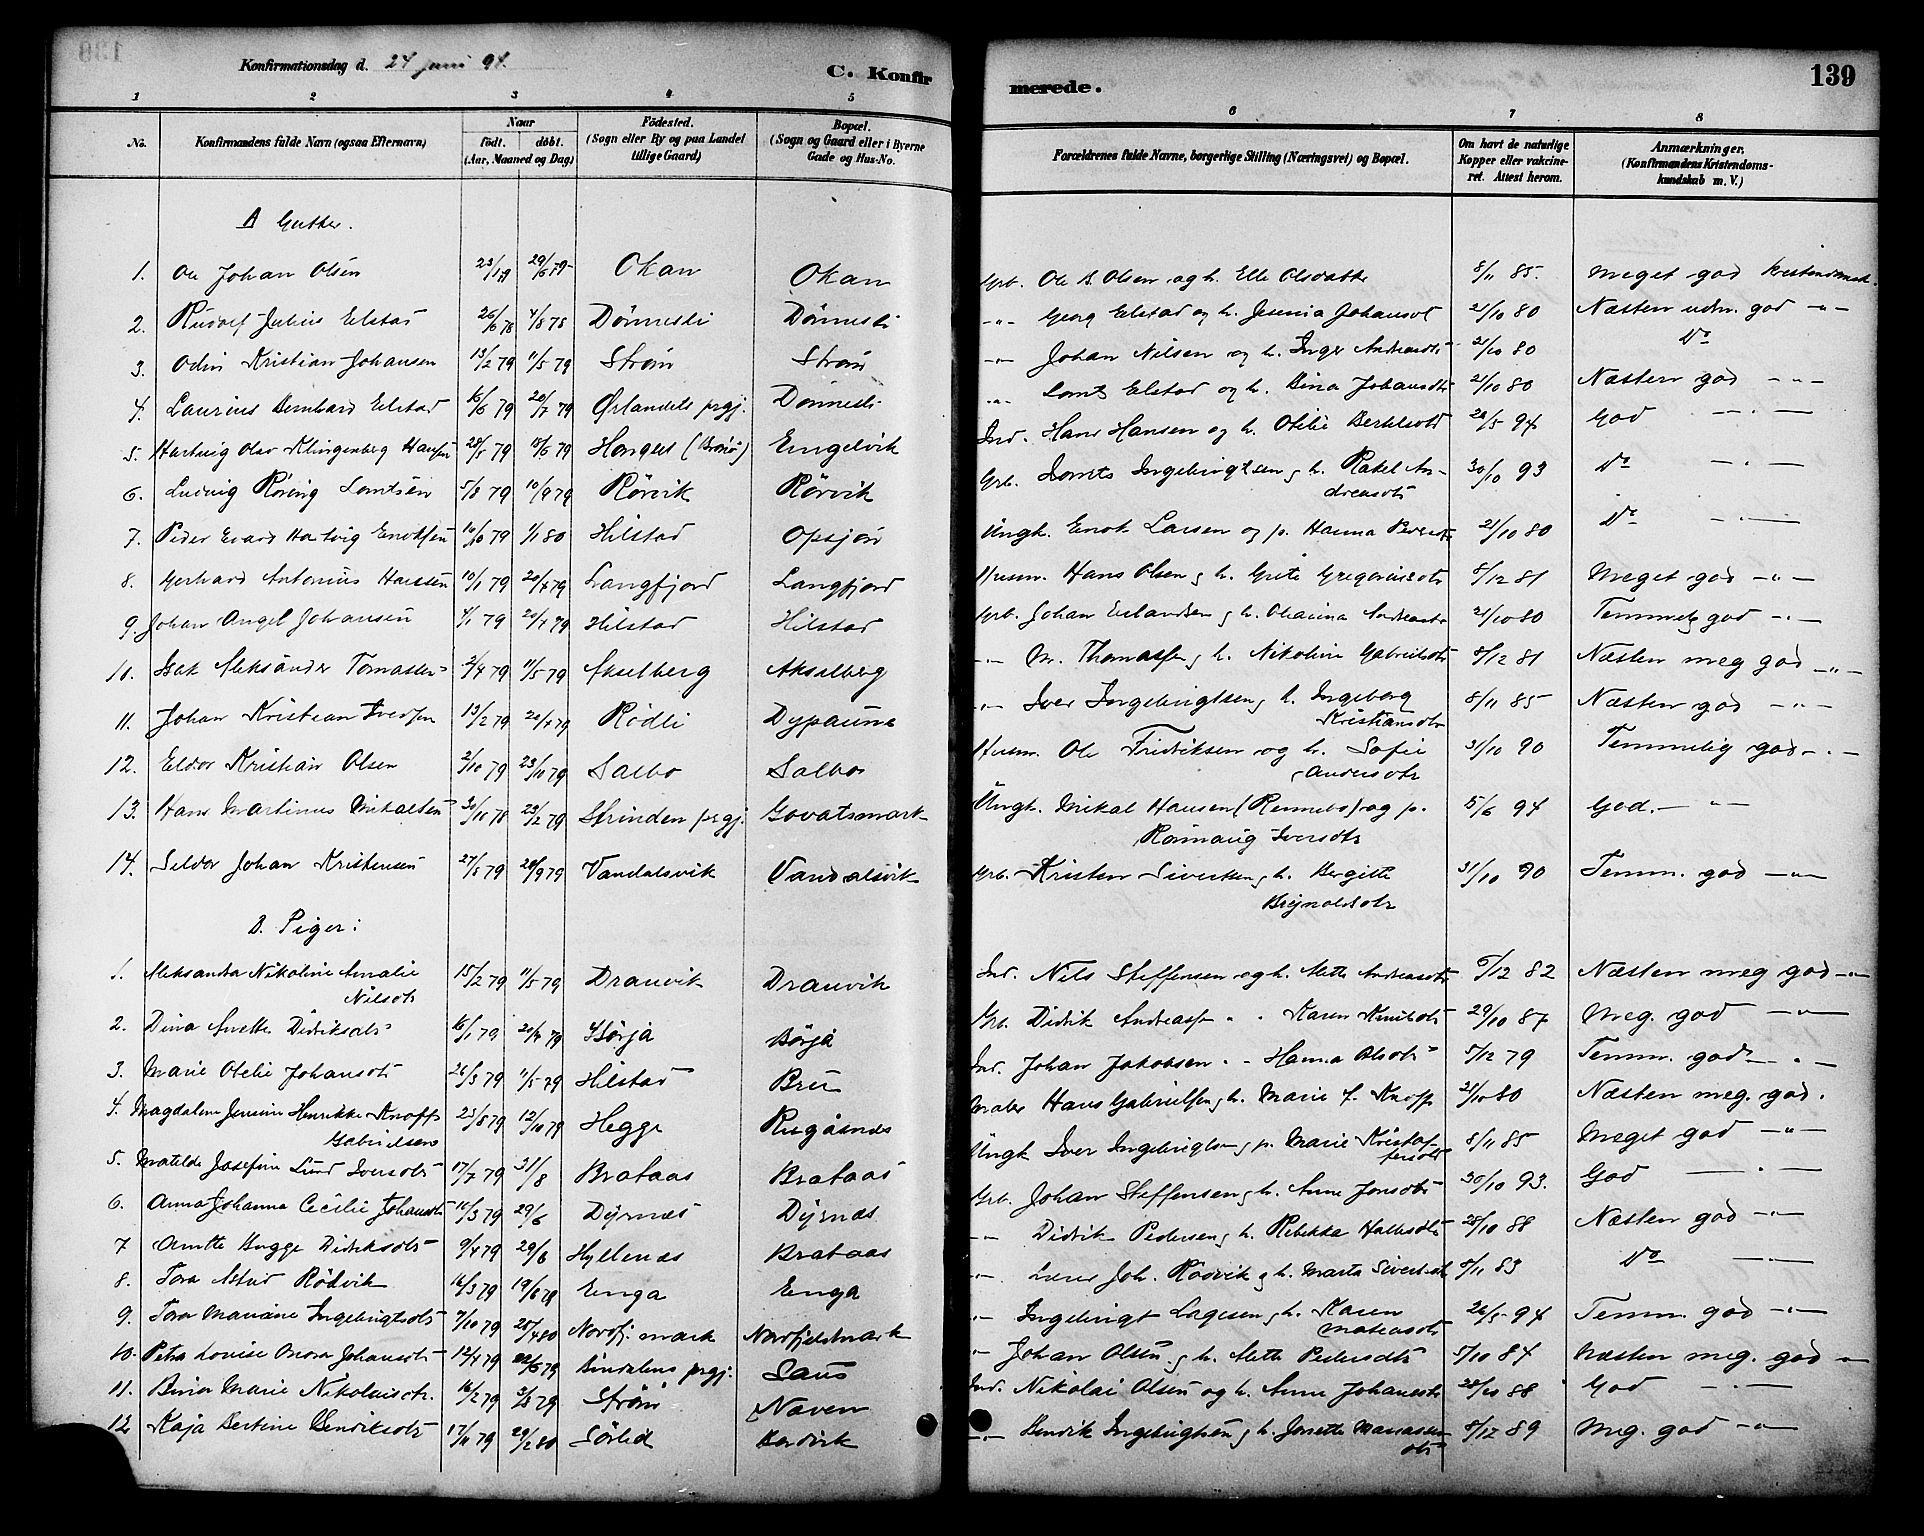 Konfirmationsdag d. 24 juni 94.
C. Konfir
merede.
139
1 2 3 4 5 6 7 8
No. Konfirmandens fulde Navn (ogsaa Efternavn) Naar født. døbt. (Aar, Maaned og Dag) Fødested. (Sogn eller By og paa Landet tillige Gaard) Bopæl. (Sogn og Gaard eller i Byerne Gade og Hus-No. Forældrenes fulde Navne, borgerlige Stilling (Næringsvei) og Bopæl. Om havt de naturlige Kopper eller vaccineret. Attest herom. Anmærkninger. (Konfirmandens Kristendomskundskab m. V.)
A Gutter.
1. Ole Johan Olsen 23/1 79 29/6 79 Okan Okan Grb. Ole B. Olsen og h. Elle Olsdatter 8/11 85. Meget god Kristendomsk.
2. Rudolf Julius Elstad 26/6 78 4/8 78 Dønnesli Dønnesli -"- Georg Elstad og h. Jesenia Johansdt 21/10 80 Næsten udm. god -"-
3. Odin Kristian Johansen 13/2 79 11/5 79 Strøm Strøm -"- Johan Nilsen og h. Inger Andreasdt 21/10 80 Do
4. Laurius Bernhard Elstad 16/6 79 20/7 79 Ørlandets prgj. Dønnesli -"- Lornts Elstad og h. Bina Johansdtr 21/10 80 Næsten god -"-
5. Hartvig Olav Klingenberg Hansen 28/5 79 15/6 79 Horgen (Brønø) Engelvik Ind. Hans Hansen og h. Otelie Bertelsdt 29/5 94 God -"-
6. Ludvig Røring Lorntsen 5/8 79 10/9 79 Rørvik Rørvik Grb. Lornts Ingebrigtsen og h. Rakel Andreasdtr 30/10 93 Do -"-
7. Peder Evard Hartvig Enoksen 10/10 79 1/1 80 Hilstad Opsjøn Ungk. Enok Larsen og p. Hanna Pedersdt 21/10 80 Do -"-
8. Gerhard Antonius Hansen 10/1 79 20/4 79 Langfjord Langfjord Husm. Hans Olsen og h. Grete Gregoriusdtr 8/12 81 Meget god -"-
9. Johan Angel Johansen 4/1 79 20/4 79 Hilstad Hilstad Grb. Johan Erlandsen og h. Olianna Andreasdtr 21/10 80 Temmelig god -"-
10. Isak Aleksander Tomassen 2/4 79 11/5 79 Akselberg Akselberg -"- M. Thomassen og h. Nikoline Gabrielsdtr 8/12 81 Næsten meg god -"-
11. Johan Kristian Iversen 13/2 79 20/4 79 Rødli Dypaune -"- Iver Ingebrigtsen og h. Ingeborg Kristiansdtr 8/11 85 Næsten god -"-
12. Eldor Kristian Olsen 2/10 79 23/11 79 Salbo Salbo Husm. Ole Fredriksen og h. Sofie Andersdtr 31/10 90 Temmelig god -"-
13. Hans Martinus Mikalsen 30/11 78 23/2 79 Strinden prgj. Govatsmark Ungk. Mikal Hansen (Rennebo) og p. Rønnaug Iversdtr 5/6 94 God. -"-
14. Seldor Johan Kristensen 27/5 79 28/9 79 Vandalsvik Vandalsvik Grb. Kristen Sivertsen og h. Bergitte Brynoldsdtr 31/10 90 Temm. god -"-
B. Piger:
1. Aleksandra Nikoline Amalie Nilsdtr 15/2 79 11/5 79 Dranvik Dranvik Ind. Nils Steffensen og h. Mette Andreasdtr 6/12 82 Næsten meg god -"-
2. Dina Anette Didriksdtr 16/1 79 20/4 79 Børja Børja Grb. Didrik Andreass. " " Karen Knutsdtr 29/10 87 Meg. god -"-
3. Marie Otelie Johansdtr 26/3 79 11/5 79 Hilstad Bru Ind. Johan Jakobsen " " Hanna Olsdtr 5/12 79 Temm. god -"-
4. Magdalene Jensine Henrikke Knoff Gabrielsen 23/8 79 12/10 79 Hegge Rugåsnes Maler Hans Gabrielsen og h. Marie f. Knoff 21/10 80 Næsten meg. god.
5. Matilde Josefine Lund Iversdtr 17/7 79 31/8 Brataas Brataas Ungk Iver Ingebrigtsen og p. Marie Kristoffersdtr 8/11 85 Meget god -"-
6. Anna Johanna Cecilie Johansdtr 10/3 79 29/6 Dyrnes Dyrnæs Grb. Johan Steffensen og h. Anne Jonsdtr 30/10 93. God -"-
7 Anette Bugge Didriksdtr 9/4 79 29/6 Hyllenes Brataas -"- Didrik Pedersen og h. Rebekka Hallesdtr 28/10 88 Næsten god -"-
8. Tora Astrid Rødvik 16/3 79 19/6 79 Enga Enga -"- Lærer Joh. Rødvik og h. Marta Sivertsdtr 8/11 83 Do -"-
9. Tora Mariane Ingebrigtsdtr 7/10 79 25/4 80 Nordfj. mark Nordfjeldmark -"- Ingebrigt Lagesen og h. Karen Mateasdtr 26/5 94 Temm. god -"-
10. Petra Lovise Onora Johansdtr 12/4 79 22/6 79 Bindalens prgj. Saus " Johan Olsen og h. Mette Pedersdtr 5/10 84 Næsten meg. god -"-
11. Bina Marie Nikolaisdtr. 16/2 79 3/8 79 Strøm Næven Ind. Nikolai Olsen og h. Anne Johansdtr 28/10 88 God -"-
12 Kaja Bertine Henriksdtr 17/11 79 29/2 80 Sørlid -"- Henrik Ingebrigtsen og h. Jonette Manassesdtr 8/12 89 Meg. god -"-